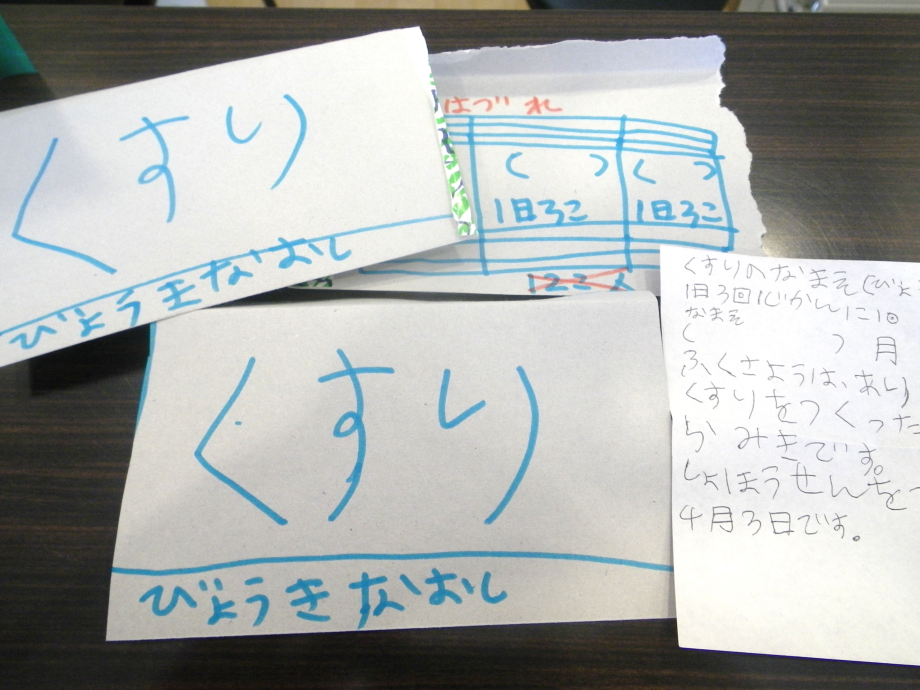 くすり
びょうきなおし
はづれ
( )
1日3こ
( )
1日3こ
くすり
びょうきなおし
くすりのなまそ(びょ
1日3回1じかんに1回
なまそ
( ) 月
ふくさようは、あり
くすりをつくった
らかみきです。
しょほうせんを
4月3日です。